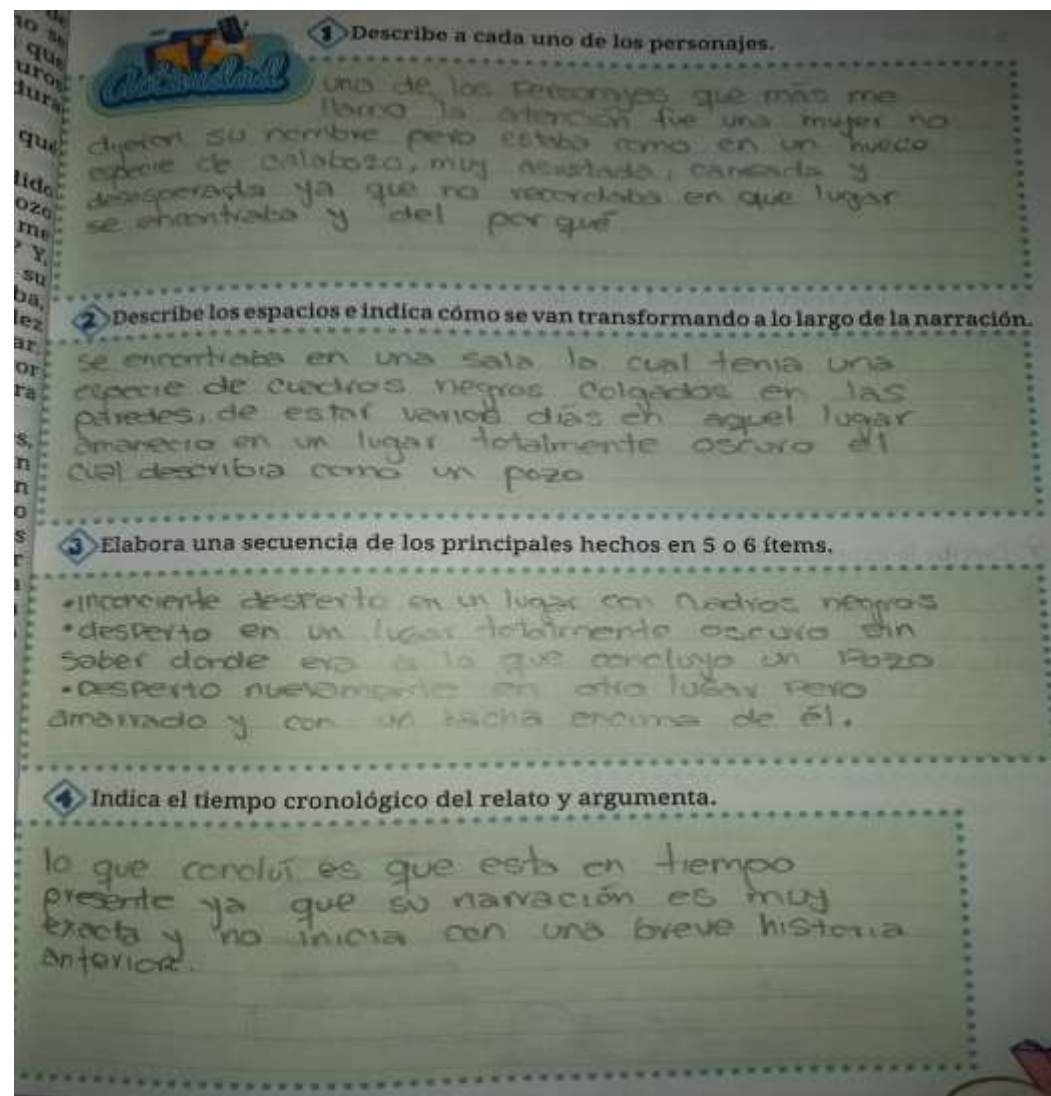 de
no se
que
uros
dura
que
lido
ozo
me
? Y,
su
ba,
lez
ar
or
ra
s,
n
n
o
s
r
Actividad
1 Describe a cada uno de los personajes.
uno de los Personajes que más me
llamo la atención fue una mujer no
dijeron su nombre pero estaba como en un hueco
especie de calabozo, muy asustada, cansada y
desesperada ya que no recordaba en que lugar
se encontraba y del por qué
2 Describe los espacios e indica cómo se van transformando a lo largo de la narración.
se encontraba en una sala la cual tenia una
especie de cuadros negros colgados en las
paredes, de estar varios dias en aquel lugar
amanecio en un lugar totalmente oscuro el
cual describia como un pozo
3 Elabora una secuencia de los principales hechos en 5 o 6 ítems.
•inconciente desperto en un lugar con negros
•desperto en un lugar totalmente oscuro sin
saber donde era a lo que concluyo un Pozo
•Desperto nuevamente en otro lugar pero
amarrado y con un hacha encima de él.
4 Indica el tiempo cronológico del relato y argumenta.
lo que concluí es que esta en tiempo
presente ya que su narración es muy
exacta y no inicia con una breve historia
anterior.